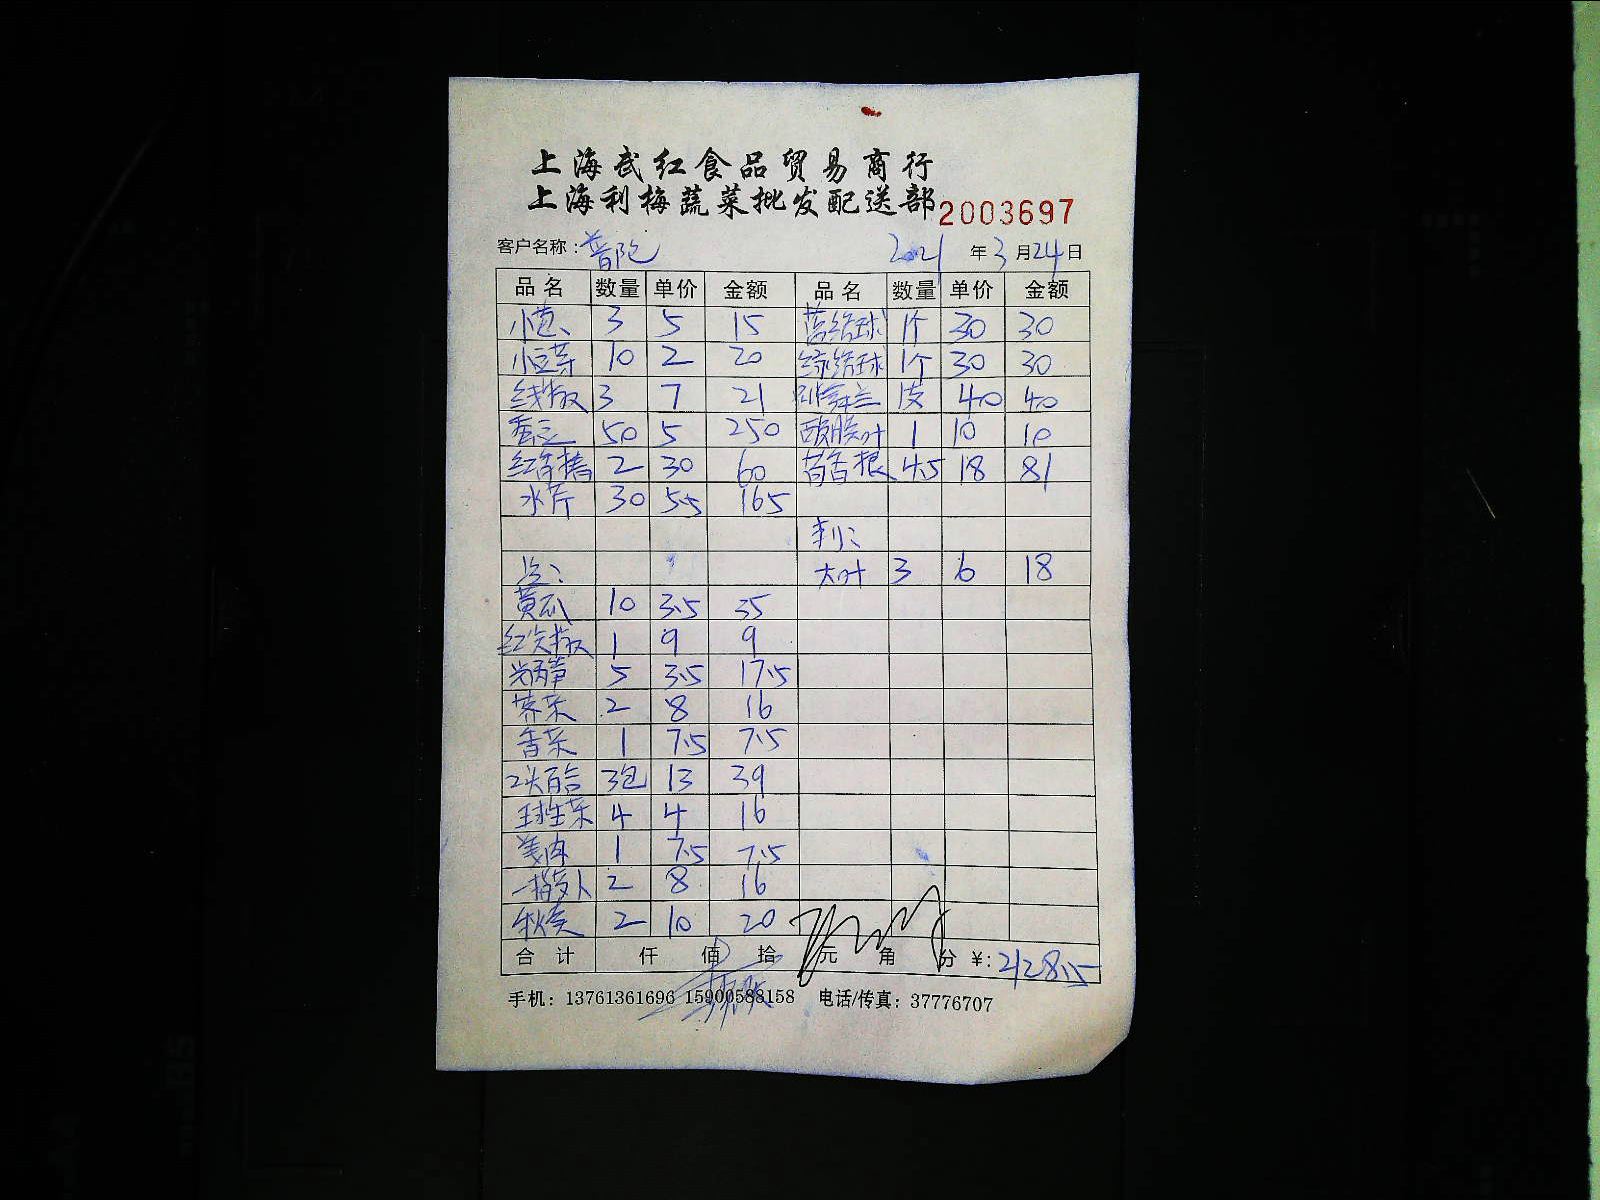 上海武红食品贸易商行
上海利梅蔬菜批发配送部 2003697
客户名称：普陀 2021年3月24日
品名 数量 单价 金额 品名 数量 单价 金额
小葱 3 5 15 1个 30 30
小豆芽 10 2 20 1个 30 30
线椒 3 7 21 40 40
蚕豆 50 5 250 1 10 10
2 30 60 茴香根 4.5 18 81
水芹 30 5.5 165
大叶 3 6 18
黄瓜 10 3.5 35
红尖椒 1 9 9
5 3.5 17.5
荠菜 2 8 16
香菜 1 7.5 7.5
2头百合 3包 13 39
球生菜 4 4 16
姜肉 1 7.5 7.5
2 8 16
秋葵 2 10 20
合计 仟 佰 拾 元 角 分 ¥：2128.5
手机：13761361696 15900588158 电话/传真：37776707